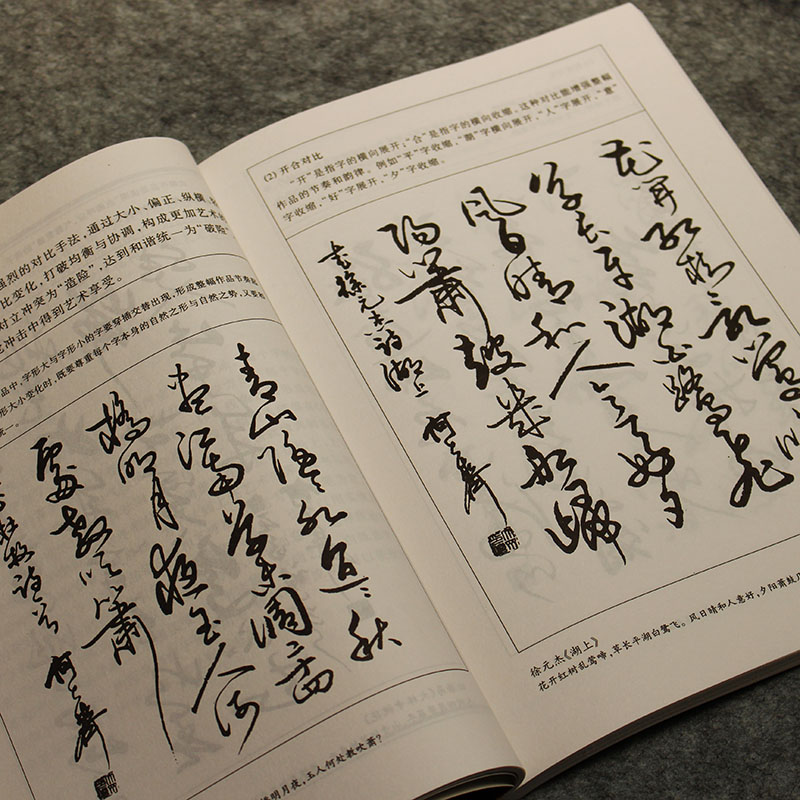 强烈的对比手法，通过大小、偏正、纵横、
比变化，打破均衡与协调，构成更加艺术
对立冲突为“造险”，达到和谐统一为“破险”
冲击中得到艺术享受。
品中，字形大与字形小的字要穿插交替出现，形成整幅作品节奏
形大小变化时，既要尊重每个字本身的自然之形与自然之势，又要
统一。
青山隐隐水迢迢秋
尽江南草未凋二十四
橋明月夜玉人何
處教吹箫
明月夜，玉人何处教吹箫？
(2) 开合对比
“开”是指字的横向展开；“合”是指字的横向收缩，这种对比能增强整幅
作品的节奏和韵律。例如“平”字收缩，“湖”字横向展开，“人”字展开，“意”
字收缩，“好”字展开，“夕”字收缩。
花開红树乱莺啼
草长平湖白鹭飞
风日晴和人意好夕
阳箫鼓几船歸
书徐元杰诗湖上
徐元杰《湖上》
花开红树乱莺啼，草长平湖白鹭飞。风日晴和人意好，夕阳箫鼓几